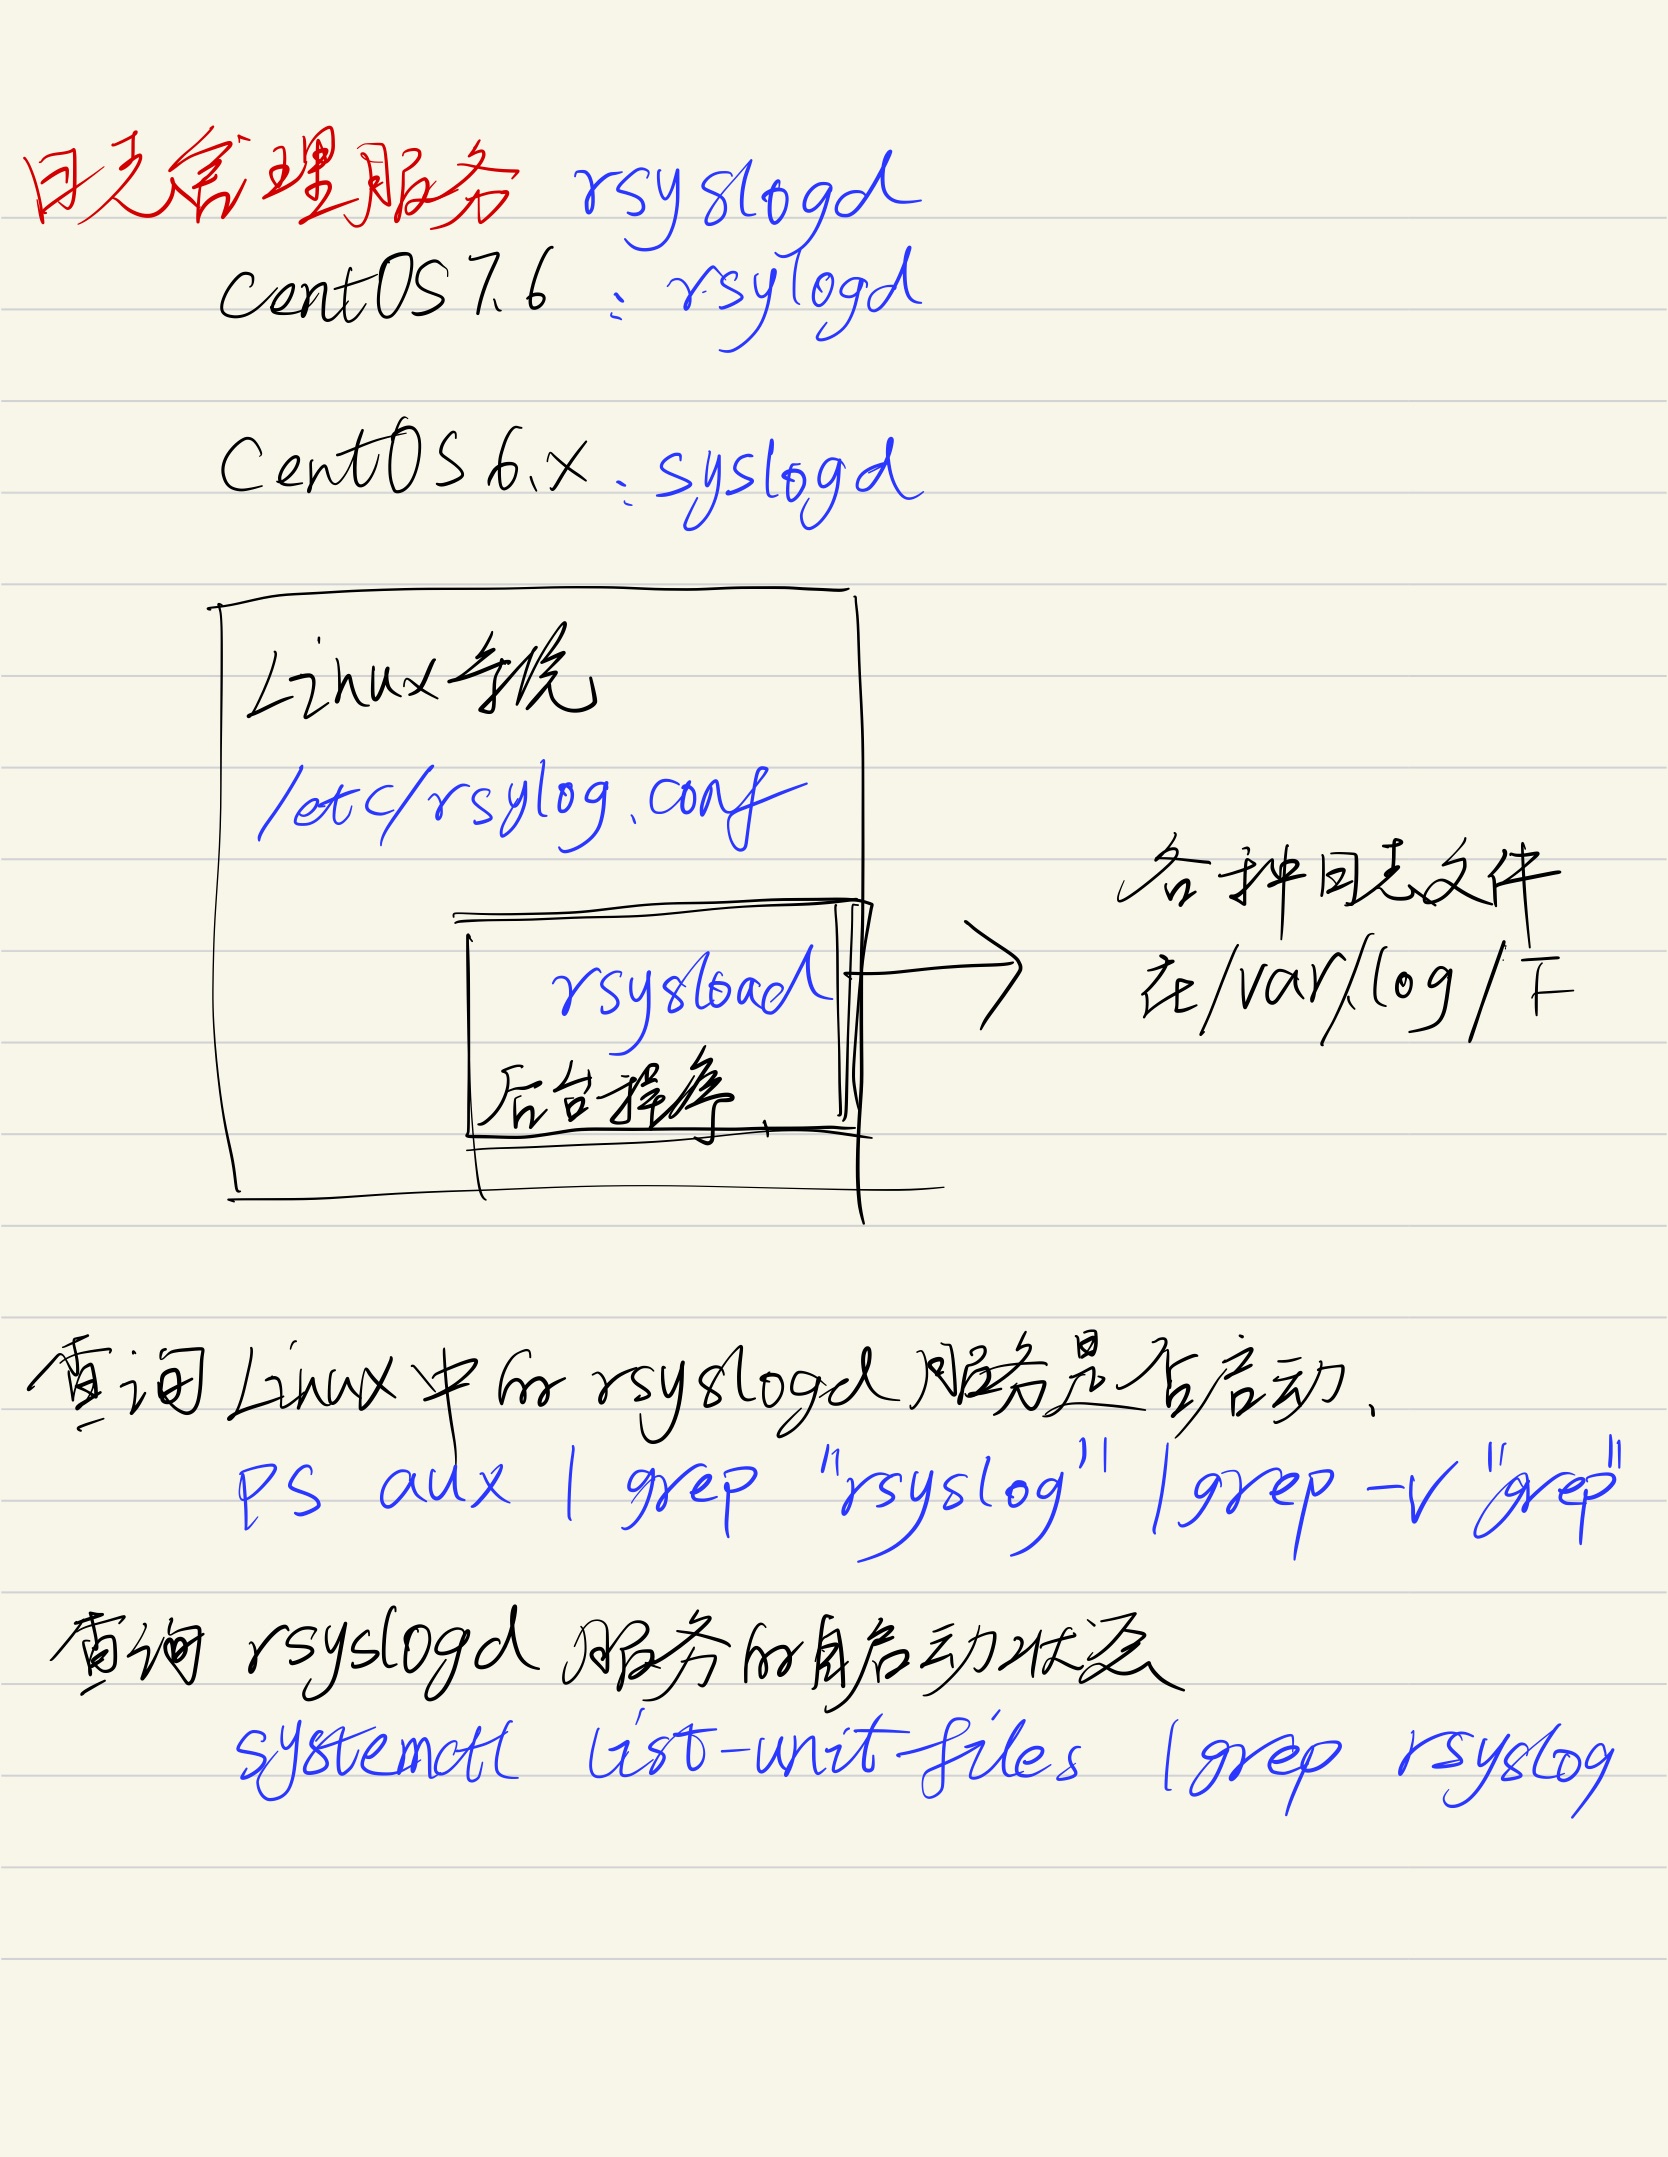 日志管理服务 rsyslogd
CentOS 7.6 : rsylogd
CentOS 6.x : syslogd
Linux系统
/etc/rsylog.conf
各种日志文件
在/var/log/下
rsysload
后台程序.
查询Linux中的rsyslogd服务是否启动.
ps aux | grep "rsyslog" | grep -v "grep"
查询 rsyslogd 服务的自启动状态
systemctl list-unit-files | grep rsyslog